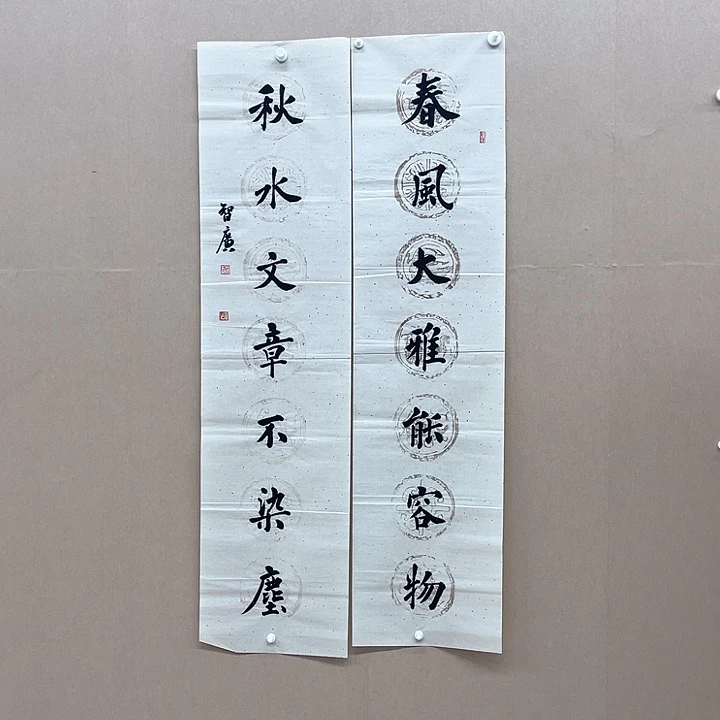 春風大雅能容物
秋水文章不染塵
智廣